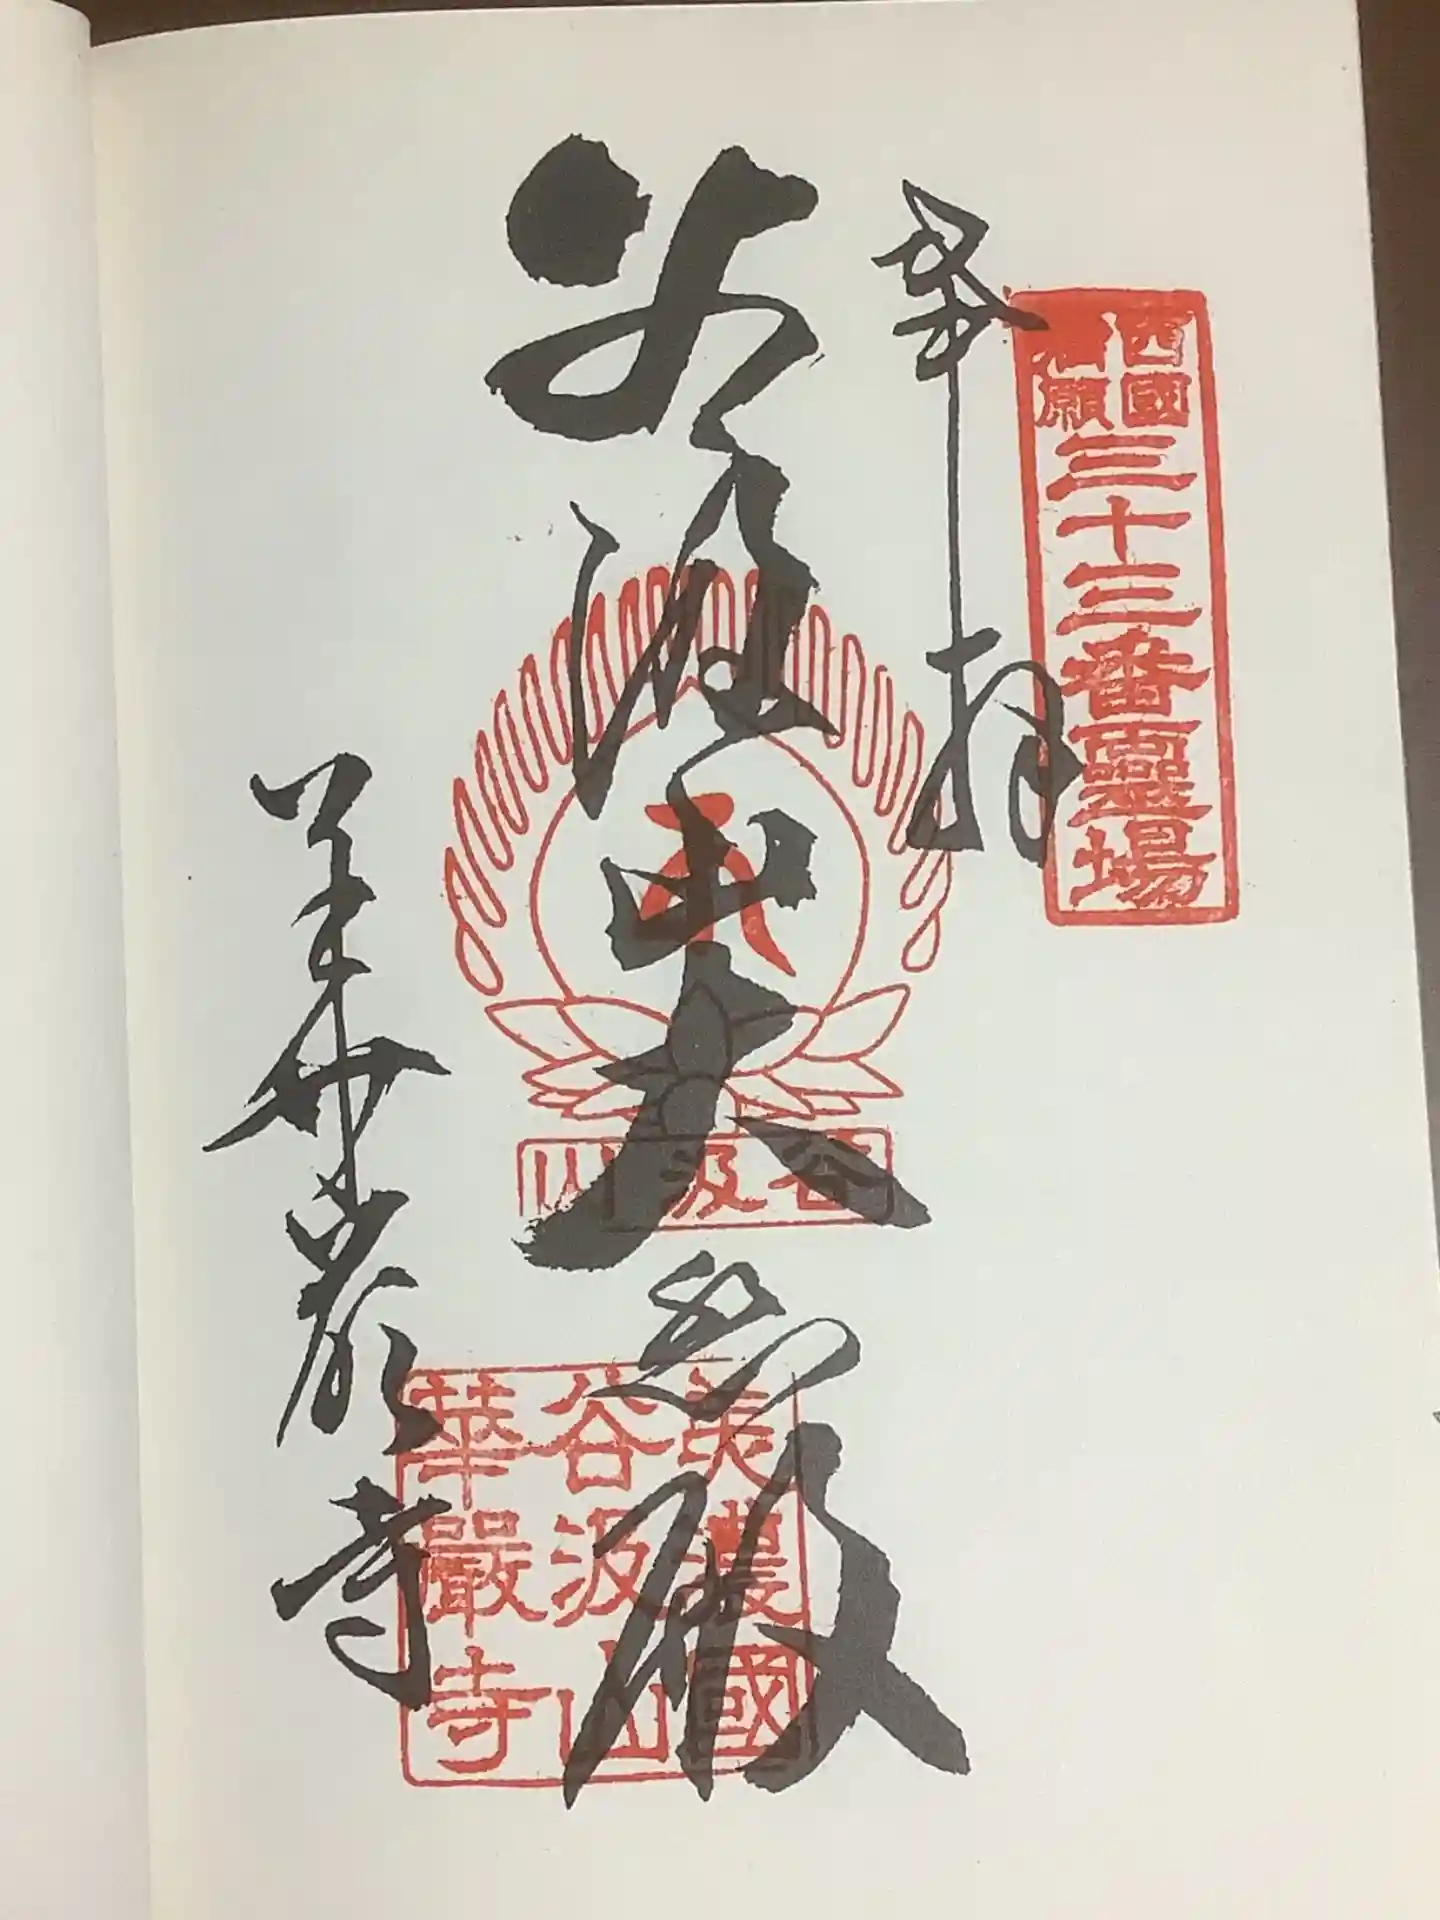 西國
満願
三十三番靈場
奉拝
谷汲山大悲殿
谷汲山
美濃國
谷汲山
華嚴寺
華厳寺